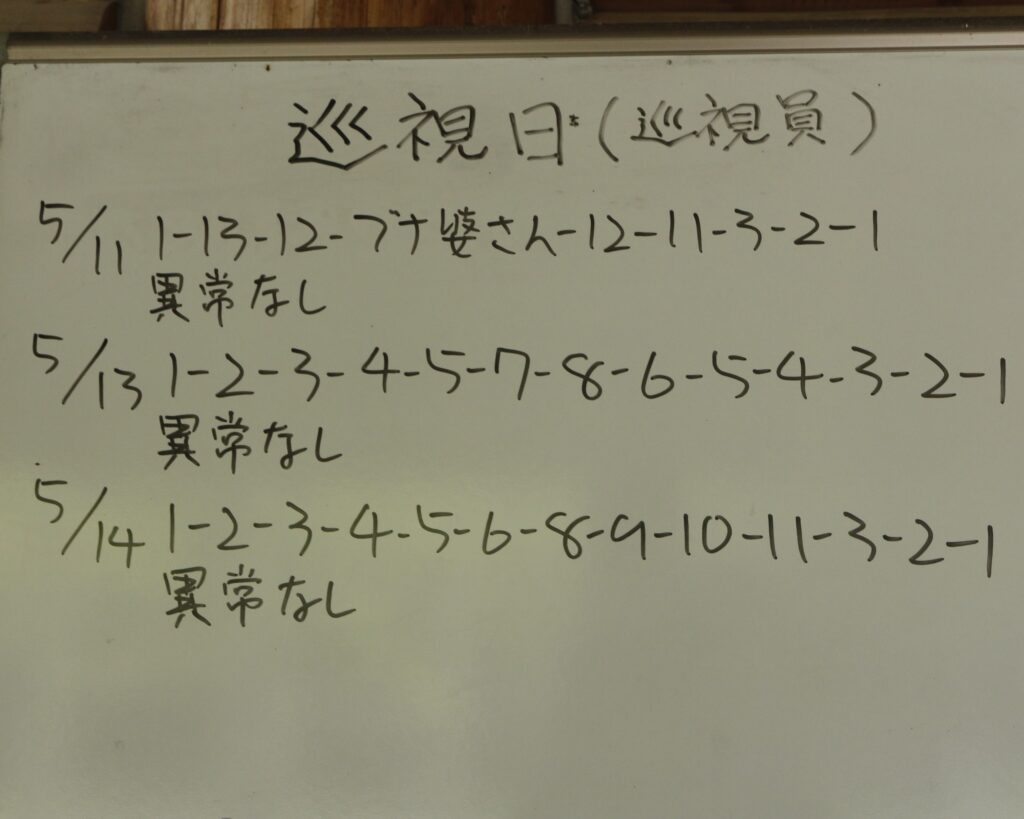 巡視日(巡視員)
5/11 1-13-12-ブナ婆さん-12-11-3-2-1
異常なし
5/13 1-2-3-4-5-7-8-6-5-4-3-2-1
異常なし
5/14 1-2-3-4-5-6-8-9-10-11-3-2-1
異常なし